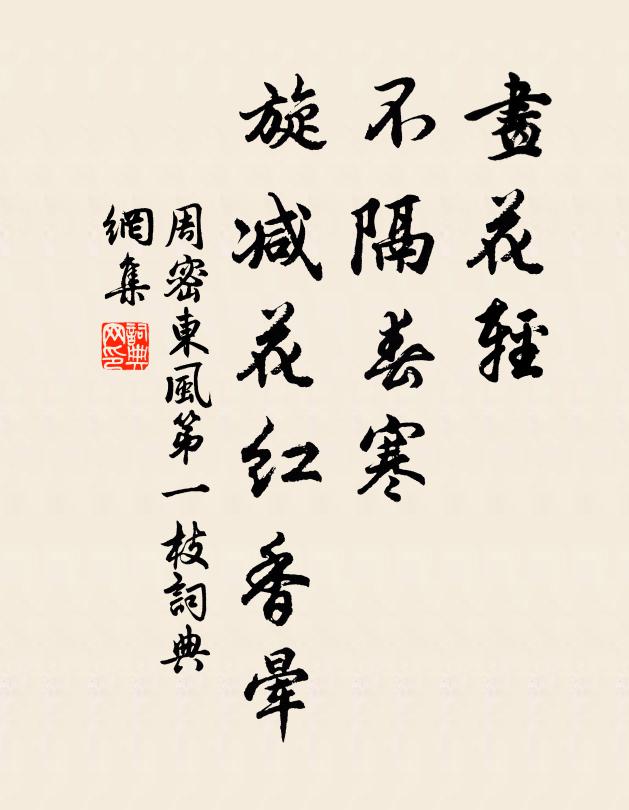 畫花輕
不隔春寒
旋减花红香暈
周密東風第一枝詞典
網集
詞典网印